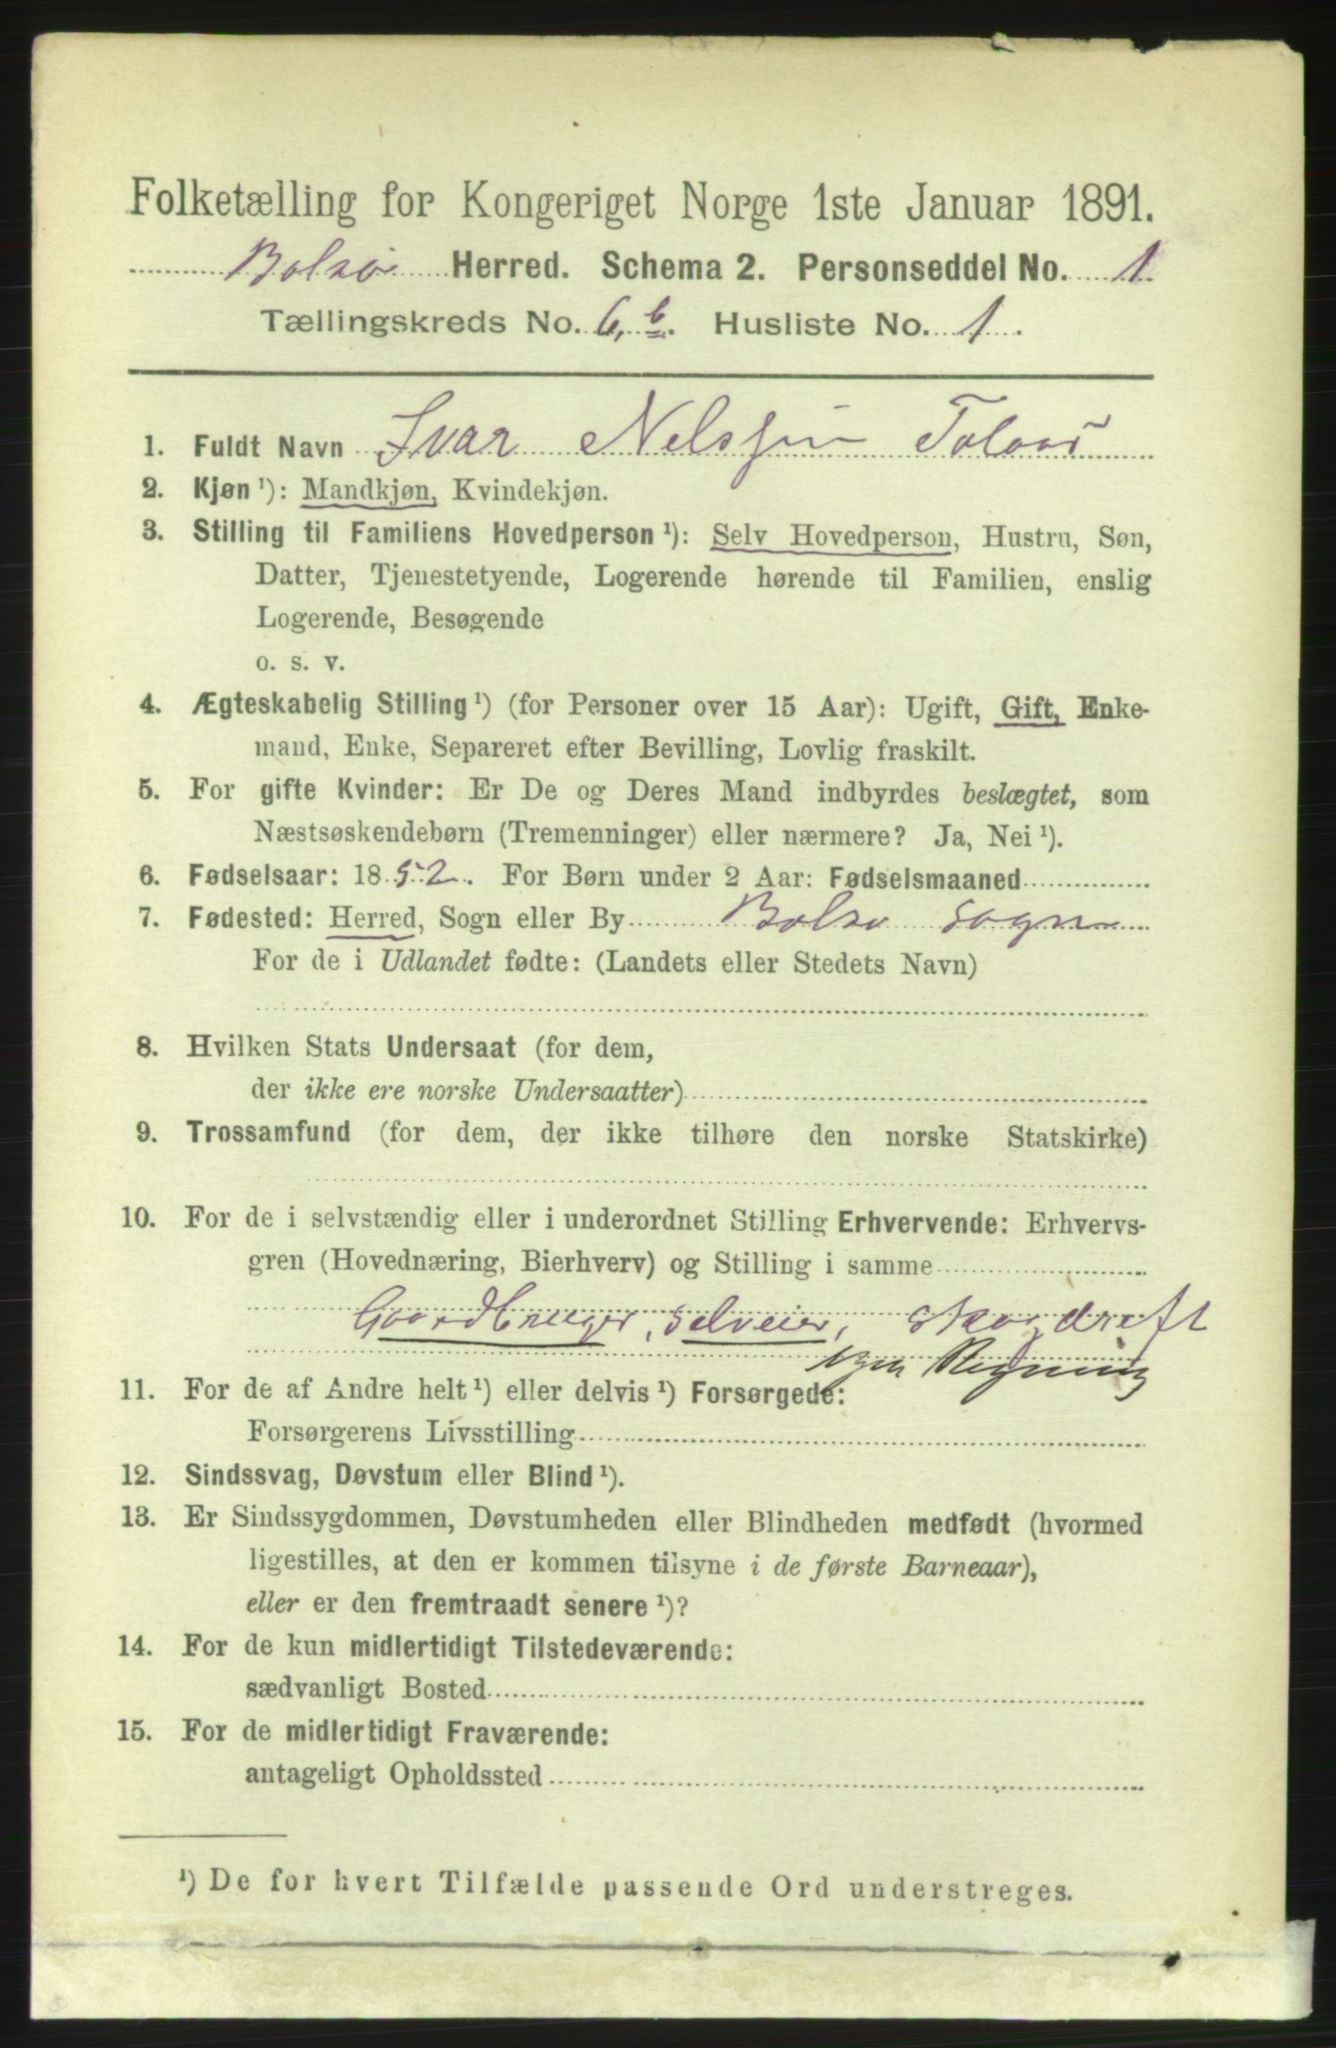 Folketælling for Kongeriget Norge 1ste Januar 1891.
Bolsø Herred. Schema 2. Personseddel No. 1
Tællingskreds No. 6, b. Husliste No. 1.
1. Fuldt Navn Ivar Nelssøn Tolaas
2. Kjøn ¹): Mandkjøn, Kvindekjøn.
3. Stilling til Familiens Hovedperson ¹): Selv Hovedperson, Hustru, Søn,
Datter, Tjenestetyende, Logerende hørende til Familien, enslig
Logerende, Besøgende
o. s. v.
4. Ægteskabelig Stilling ¹) (for Personer over 15 Aar): Ugift, Gift, Enke-
mand, Enke, Separeret efter Bevilling, Lovlig fraskilt.
5. For gifte Kvinder: Er De og Deres Mand indbyrdes beslægtet, som
Næstsøskendebørn (Tremenninger) eller nærmere? Ja, Nei ¹).
6. Fødselsaar: 1852. For Børn under 2 Aar: Fødselsmaaned
7. Fødested: Herred, Sogn eller By Bolsø Sogn
For de i Udlandet fødte: (Landets eller Stedets Navn)
8. Hvilken Stats Undersaat (for dem,
der ikke ere norske Undersaatter)
9. Trossamfund (for dem, der ikke tilhøre den norske Statskirke)
10. For de i selvstændig eller i underordnet Stilling Erhvervende: Erhvervs-
gren (Hovednæring, Bierhverv) og Stilling i samme
Gaardbruger, selveier, skovdrift
Regning
11. For de af Andre helt ¹) eller delvis ¹) Forsørgede:
Forsørgerens Livsstilling
12. Sindssvag, Døvstum eller Blind ¹).
13. Er Sindssygdommen, Døvstumheden eller Blindheden medfødt (hvormed
ligestilles, at den er kommen tilsyne i de første Barneaar),
eller er den fremtraadt senere ¹)?
14. For de kun midlertidigt Tilstedeværende:
sædvanligt Bosted
15. For de midlertidigt Fraværende:
antageligt Opholdssted
¹) De for hvert Tilfælde passende Ord understreges.